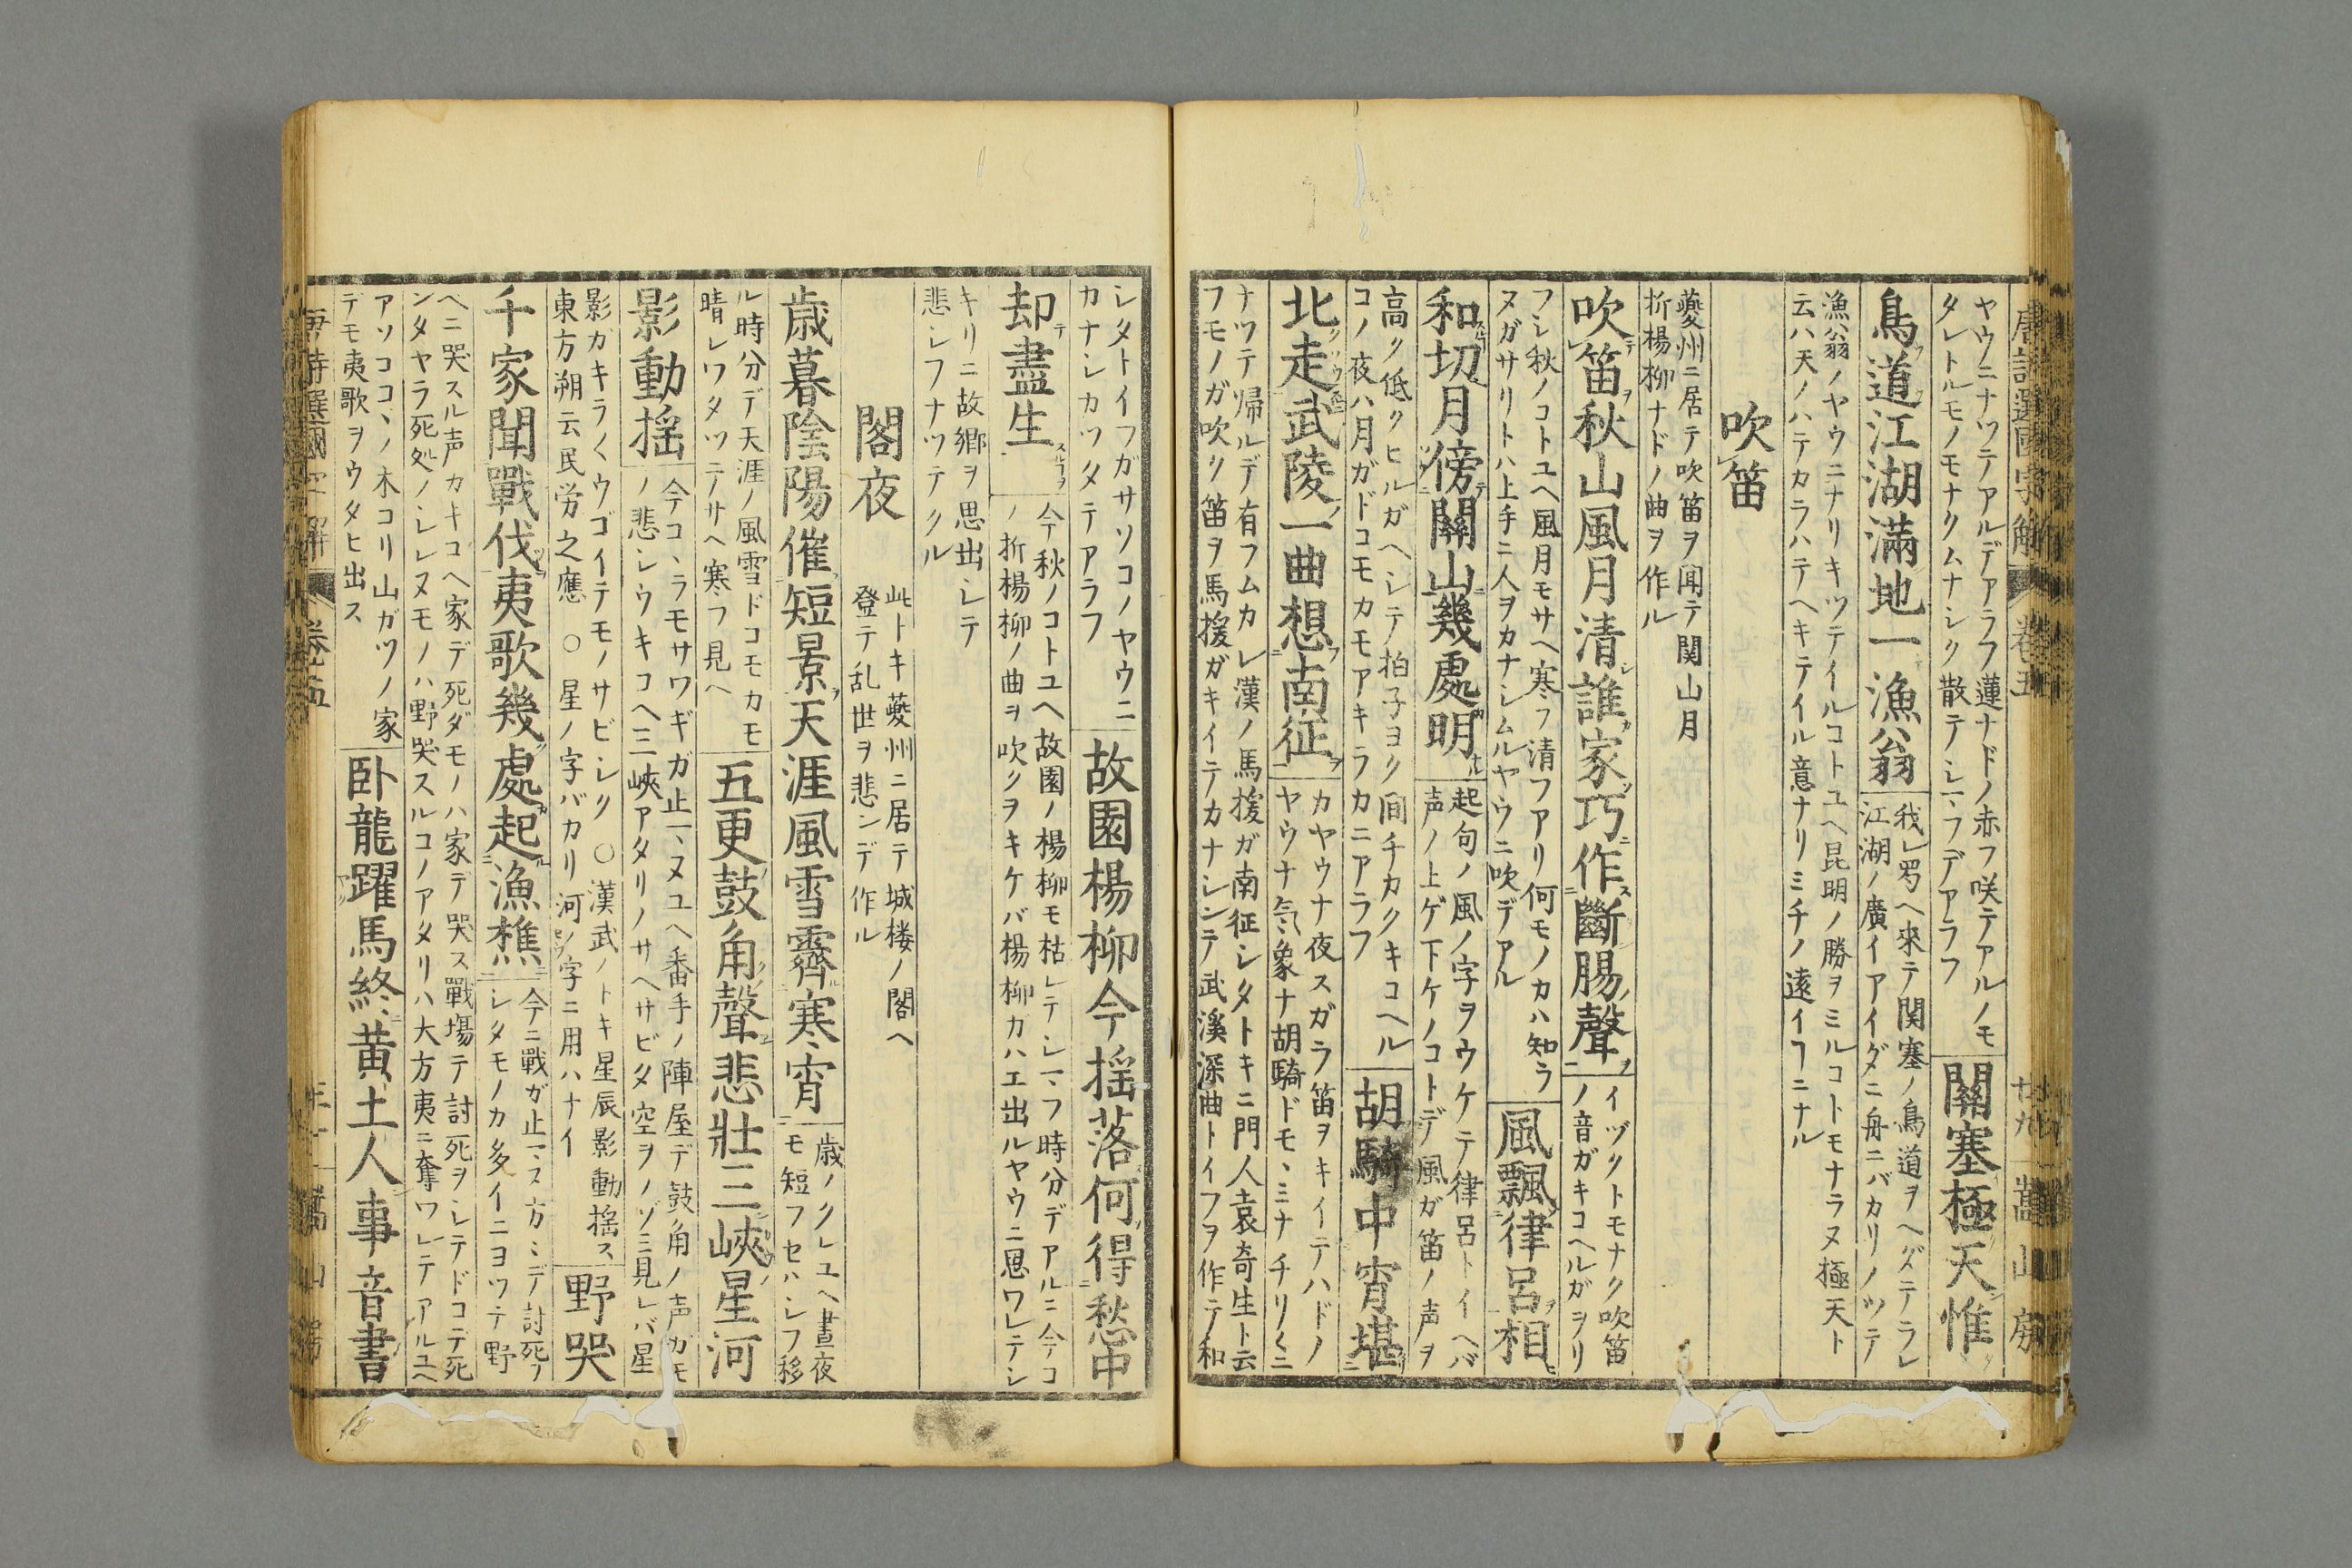 唐詩選國字解 卷五 廿九 嵩山房
ヤウニナツテアルデアラフ蓮ナドノ赤フ咲テアルノモ
タレトルモノモナクムナシク散テシマフデアラフ
關塞極天惟
鳥道江湖滿地一漁翁
我レ罗ヘ來テ関塞ノ鳥道ヲヘダテラレ
江湖ノ廣イアイダニ舟ニバカリノツテ
漁翁ノヤウニナリキツテイルコトユヘ昆明ノ勝ヲミルコトモナラヌ極天ト
云ハ天ノハテカラハテヘキテイル意ナリミチノ遠イヿニナル
吹笛
夔州ニ居テ吹笛ヲ聞テ関山月
折楊柳ナドノ曲ヲ作ル
吹笛秋山風月清誰家巧作斷腸聲
イヅクトモナク吹笛
ノ音ガキコヘルガヲリ
フシ秋ノコトユヘ風月モサヘ寒フ清フアリ何モノカハ知ラ
ヌガサリトハ上手ニ人ヲカナシムルヤウニ吹デアル
風飄律呂相
和切月傍關山幾處明
起句ノ風ノ字ヲウケテ律呂トイヘバ
声ノ上ゲ下ケノコトデ風ガ笛ノ声ヲ
高ク低クヒルガヘシテ拍子ヨク間チカクキコヘル
コノ夜ハ月ガドコモカモアキラカニアラフ
胡騎中宵堪
北走武陵一曲想南征
カヤウナ夜スガラ笛ヲキイテハドノ
ヤウナ気象ナ胡騎ドモヽミナチリ〱ニ
ナツテ帰ルデ有フムカシ漢ノ馬援ガ南征シタトキニ門人袁奇生ト云
フモノガ吹ク笛ヲ馬援ガキイテカナシンテ武溪深曲トイフヲ作テ和
シタトイフガサソコノヤウニ
カナシカツタテアラフ
故園楊柳今揺落何得愁中
却盡生
今秋ノコトユヘ故園ノ楊柳モ枯レテシマフ時分デアルニ今コ
ノ折楊柳ノ曲ヲ吹クヲキケバ楊柳カハエ出ルヤウニ思ワレテシ
キリニ故郷ヲ思出シテ
悲シフナツテクル
閣夜
此トキ夔州ニ居テ城楼ノ閣ヘ
登テ乱世ヲ悲ンデ作ル
歳暮陰陽催短景天涯風雪霽寒宵
歳ノクレユヘ晝夜
モ短フセハシフ移
ル時分デ天涯ノ風雪ドコモカモ
晴レワタツテサヘ寒フ見ヘ
五更鼓角聲悲壯三峽星河
影動揺
今コヽラモサワギガ止マヌユヘ番手ノ陣屋デ鼓角ノ声ガモ
ノ悲シウキコヘ三峽アタリノサヘサビタ空ヲノゾミ見レバ星
影ガキラ〱ウゴイテモノサビシク ○漢武ノトキ星辰影動揺ス
東方朔云民労之應 ○星ノ字バカリ河ノ字ニ用ハナイ
野哭
千家聞戰伐夷歌幾處起漁樵
今ニ戰ガ止マス方ミデ討死ノ
シタモノカ多イニヨツテ野
ヘニ哭スル声カキコヘ家デ死ダモノハ家デ哭ス戰場テ討死ヲシテドコデ死
ンタヤラ死処ノシレヌモノハ野哭スルコノアタリハ大方夷ニ奪ワレテアルユヘ
アソココヽノ木コリ山ガツノ家
デモ夷歌ヲウタヒ出ス
卧龍躍馬終黄土人事音書
唐詩選國字解 卷五